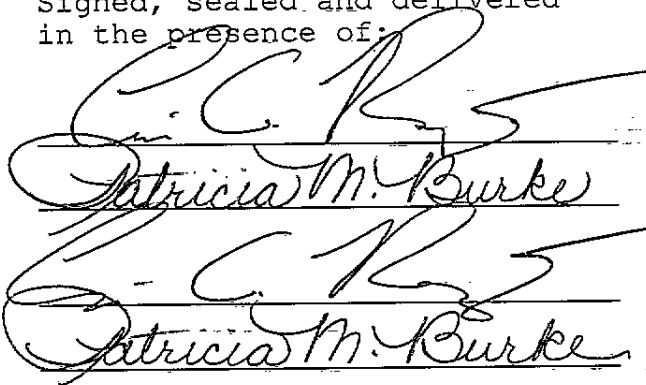 Signed, sealed and delivered
in the presence of:
C.
Patricia M. Burke
C.
Patricia M. Burke